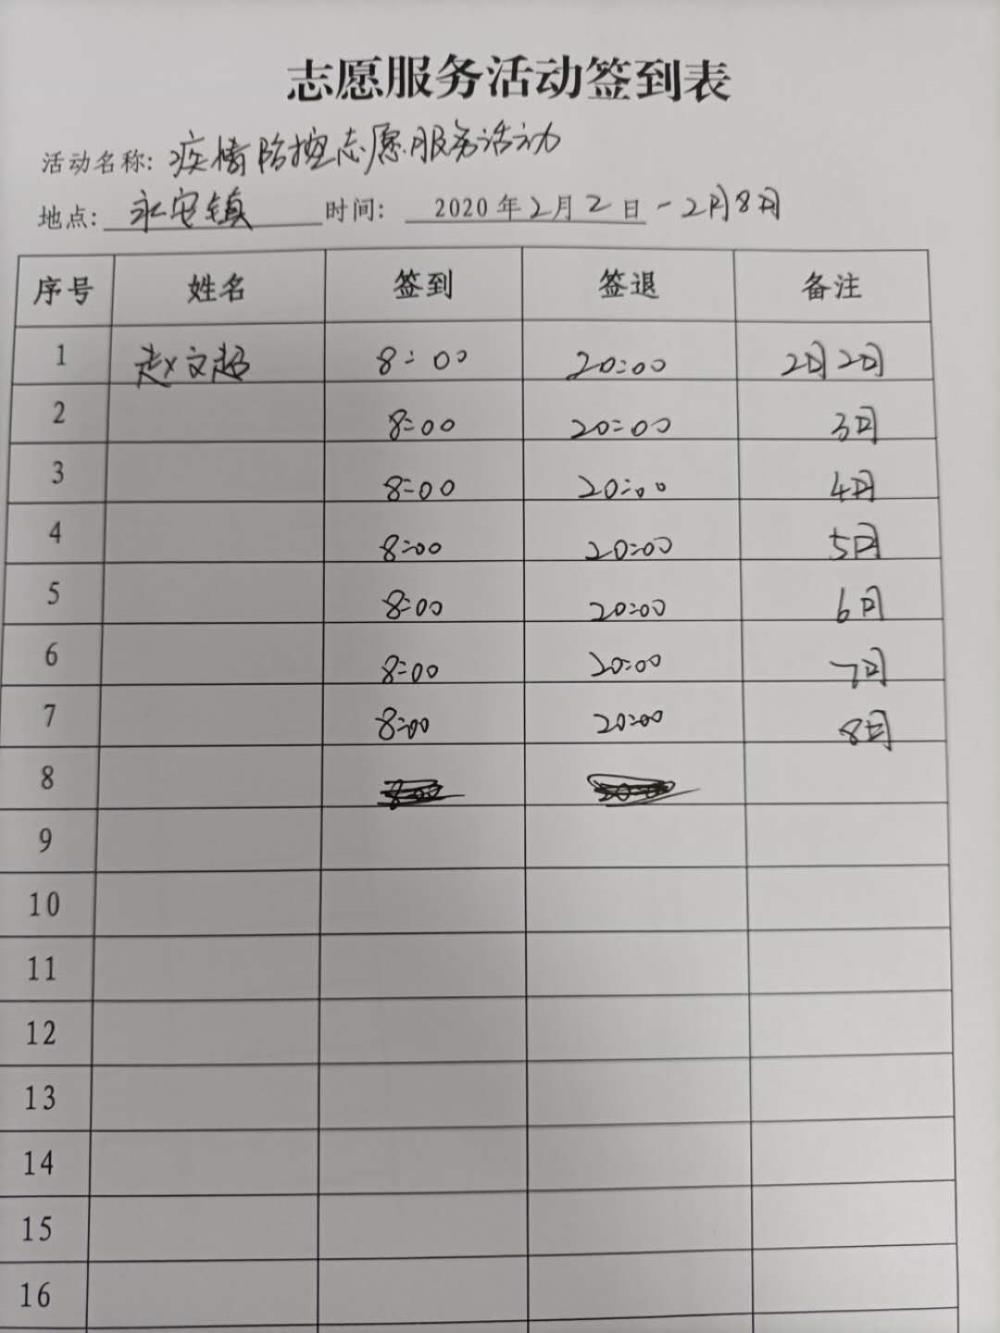 志愿服务活动签到表
活动名称: 疫情防控志愿服务活动
地点: 永安镇 时间: 2020年2月2日-2月8日
序号 姓名 签到 签退 备注
1 赵文超 8:00 20:00 2月2日
2 8:00 20:00 3日
3 8:00 20:00 4日
4 8:00 20:00 5日
5 8:00 20:00 6日
6 8:00 20:00 7日
7 8:00 20:00 8日
8
9
10
11
12
13
14
15
16